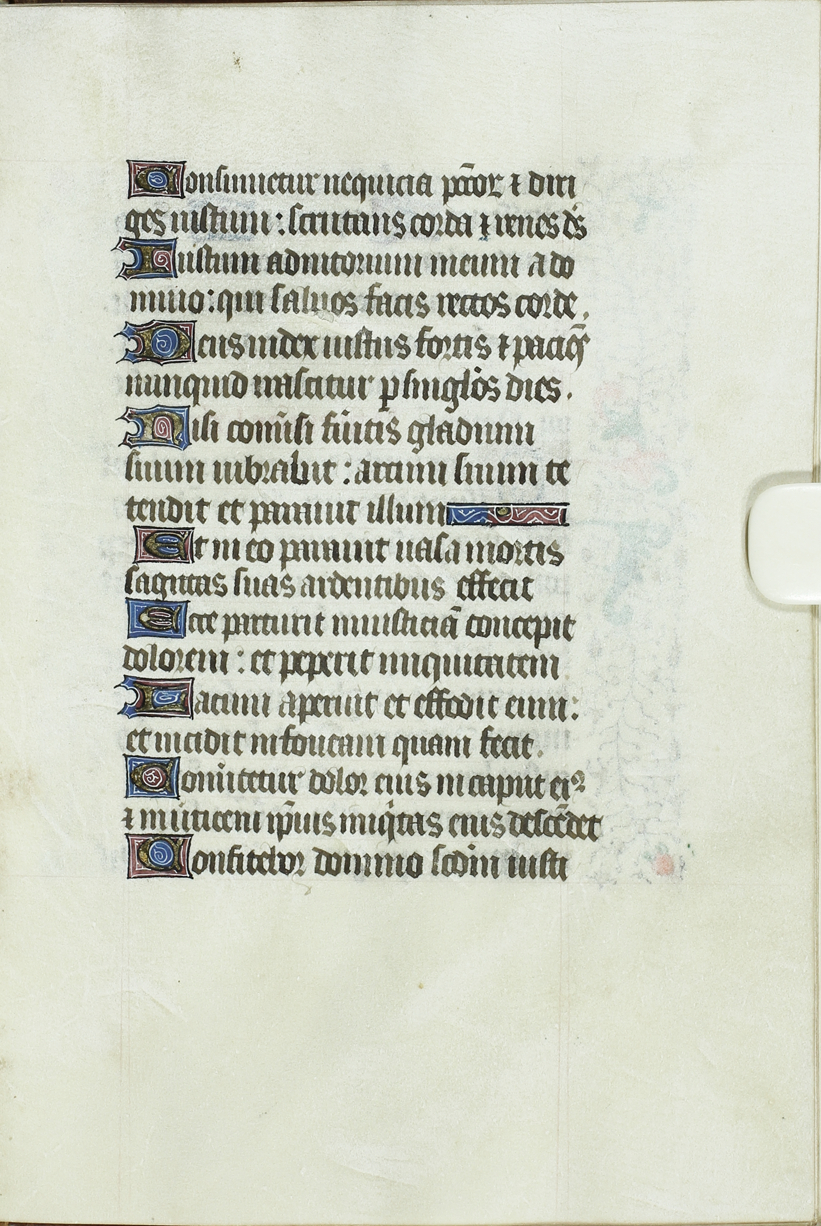 Consumetur nequicia pc̄cor ⁊ diri
ges iustum : scrutans corda ⁊ renes ds̄
Iustum adiutorium meum a do
mino : qui saluos facit rectos corde .
Deus iudex iustus fortis ⁊ paciēs
nunquid irascitur p singlōs dies .
Nisi conūsi fūitis gladium
suum uibrabit : arcum suum te
tendit et parauit illum
Et in eo parauit uasa mortis
sagittas suas ardentibus effecit
Ecce parturit iniusticiā concepit
dolorem : et peperit iniquitatem
Lacum aperuit et effodit eum :
et incidit in foueam quam fecit .
Conūtetur dolor eius in caput eiꝰ
⁊ in uiticem ip̄ius iniq̄tas eius descēdet
Confitebor domino scdm̄ iusti